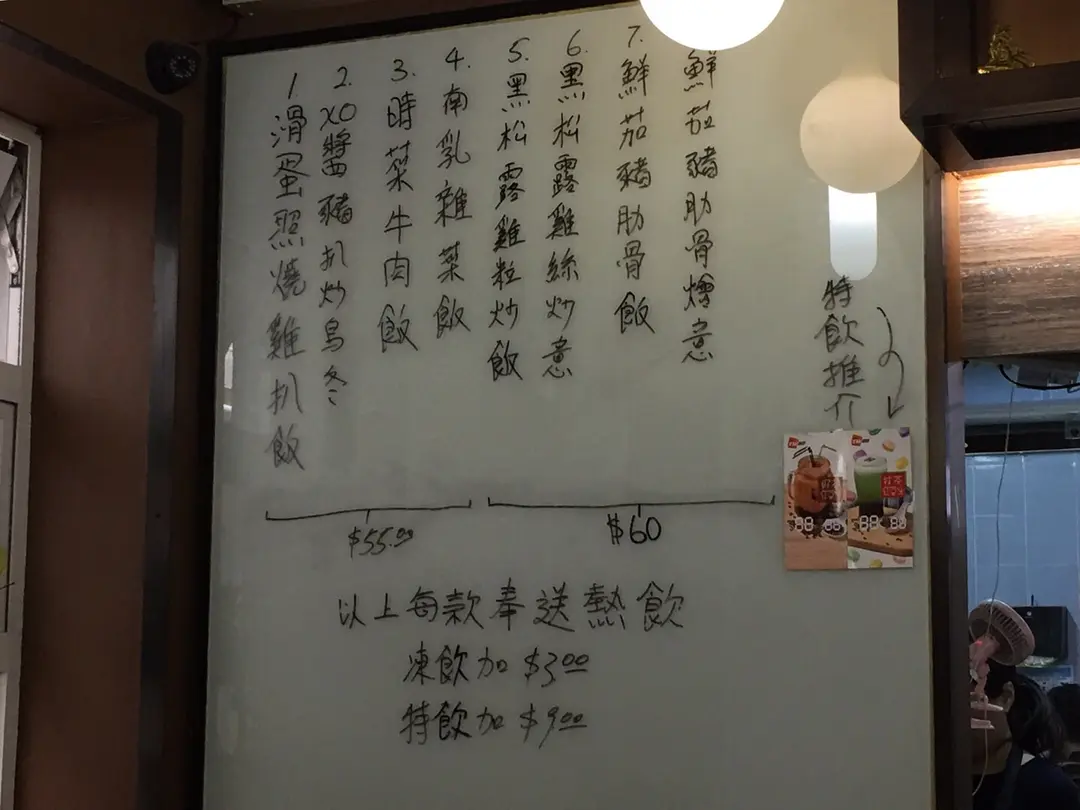 1. 滑蛋照燒雞扒飯
2. XO醬豬扒炒烏冬
3. 時菜牛肉飯
4. 南乳雜菜飯
5. 黑松露雞粒炒飯
6. 黑松露雞絲炒意
7. 鮮茄豬肋骨飯
鮮茄豬肋骨燴意
$55.00
$60
以上每款奉送熱飲
凍飲加 $3.00
特飲加 $9.00
特飲推介